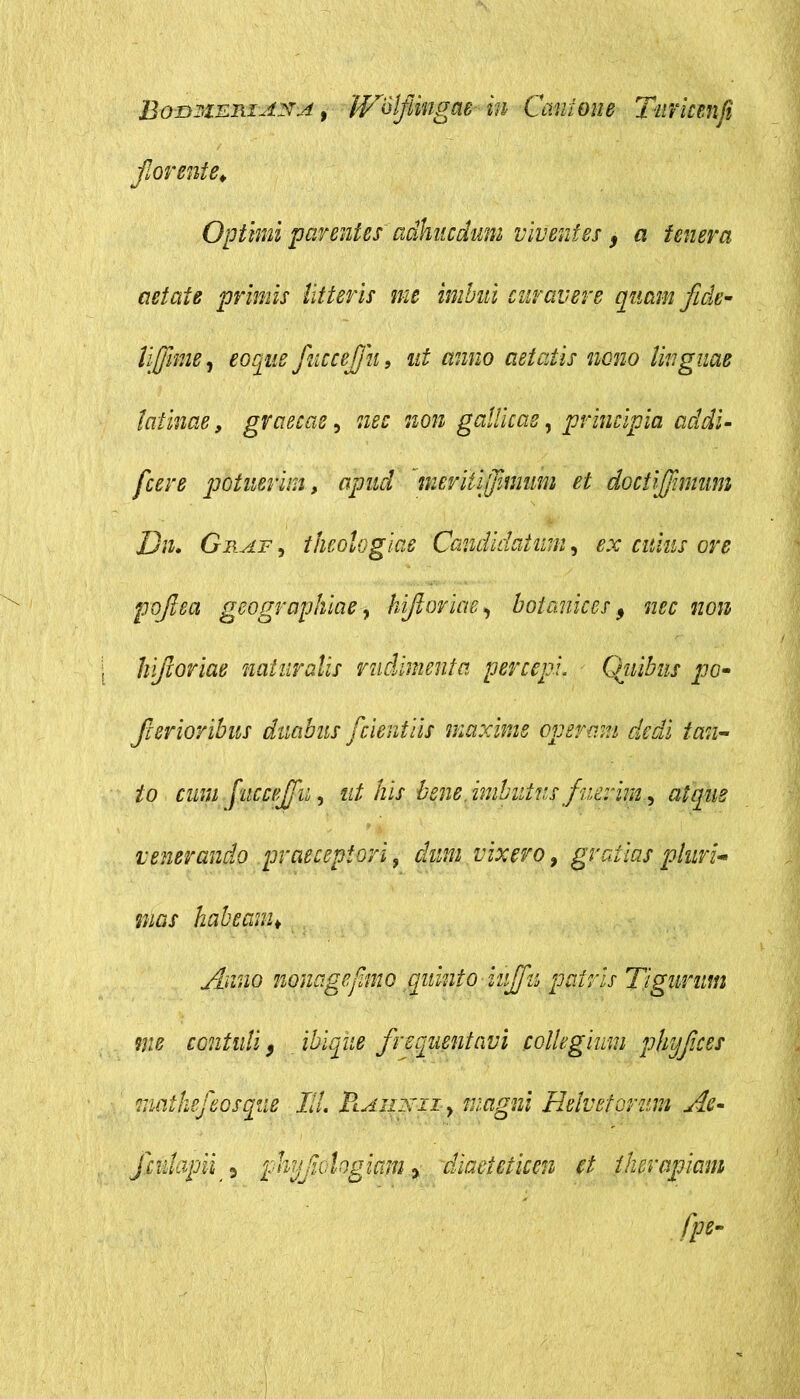 BODMERIANA, Wölflingae in Cantone Turicenſi
florente.
Optimi parentes adhucdum viventes, a tenera
aetate primis litteris me imbui curavere quam fide-
liſſime, eoque ſucceſſu, ut anno aetatis nono linguae
latinae, graecae, nec non gallicae, principia addi-
ſcere potuerim, apud meritiſſimum et doctiſſimum
Dn. GRAF, theologiae Candidatum, ex cuius ore
poſtea geographiae, hiſtoriae, botanices, nec non
hiſtoriae naturalis rudimenta percepi. Quibus po-
ſterioribus duabus ſcientiis maxime operam dedi tan-
to cum ſucceſſu, ut his bene imbutus fuerim, atque
venerando praeceptori, dum vixero, gratias pluri-
mas habeam.
Anno nonageſimo quinto iuſſu patris Tigurum
me contuli, ibique frequentavi collegium phyſices
matheſeosque Ill. RAHNII, magni Helvetorum Ae-
ſculapii, phyſiologiam, diaeteticen et therapiam
ſpe-